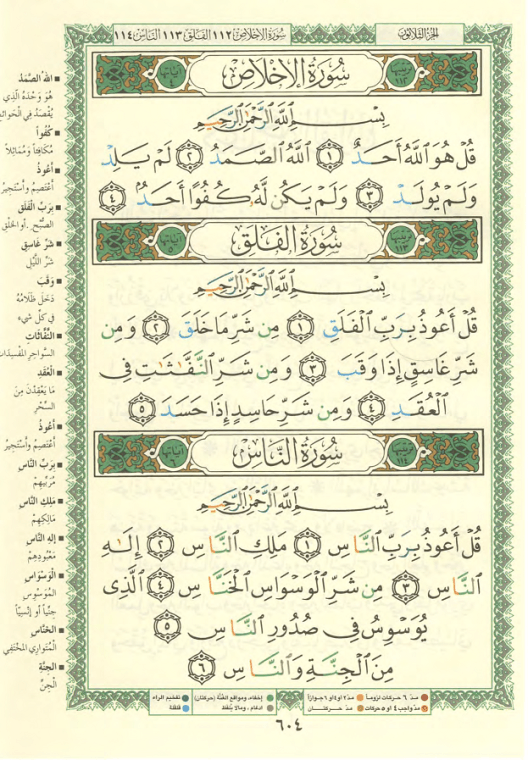 الجزء الثلاثون
سورة الإخلاص ١١٢ الفلق ١١٣ الناس ١١٤
سُورَةُ الإِخْلَاصِ
بِسْمِ اللَّهِ الرَّحْمَٰنِ الرَّحِيمِ
قُلْ هُوَ اللَّهُ أَحَدٌ ١ اللَّهُ الصَّمَدُ ٢ لَمْ يَلِدْ
وَلَمْ يُولَدْ ٣ وَلَمْ يَكُن لَّهُ كُفُوًا أَحَدٌ ٤
سُورَةُ الْفَلَقِ
بِسْمِ اللَّهِ الرَّحْمَٰنِ الرَّحِيمِ
قُلْ أَعُوذُ بِرَبِّ الْفَلَقِ ١ مِن شَرِّ مَا خَلَقَ ٢ وَمِن
شَرِّ غَاسِقٍ إِذَا وَقَبَ ٣ وَمِن شَرِّ النَّفَّاثَاتِ فِي
الْعُقَدِ ٤ وَمِن شَرِّ حَاسِدٍ إِذَا حَسَدَ ٥
سُورَةُ النَّاسِ
بِسْمِ اللَّهِ الرَّحْمَٰنِ الرَّحِيمِ
قُلْ أَعُوذُ بِرَبِّ النَّاسِ ١ مَلِكِ النَّاسِ ٢ إِلَٰهِ
النَّاسِ ٣ مِن شَرِّ الْوَسْوَاسِ الْخَنَّاسِ ٤ الَّذِي
يُوَسْوِسُ فِي صُدُورِ النَّاسِ ٥
مِنَ الْجِنَّةِ وَالنَّاسِ ٦
■ اللهُ الصَّمَدُ
هُوَ وَحْدَهُ الَّذِي
يُقْصَدُ فِي الْحَوَائِجِ
■ كُفُواً
مُكَافِئاً وَمُمَاثِلاً
■ أَعُوذُ
أَعْتَصِمُ وَأَسْتَجِيرُ
■ بِرَبِّ الْفَلَقِ
الصُّبْحِ. أو الخَلْقِ
■ شَرِّ غَاسِقٍ
شَرِّ اللَّيْلِ
■ وَقَبَ
دَخَلَ ظَلَامُهُ
في كلِّ شيء
■ النَّفَّاثَاتِ
السَّوَاحِرِ المُفْسِدَاتِ
■ الْعُقَدِ
مَا يَعْقِدْنَ مِنَ
السِّحْرِ
■ أَعُوذُ
أَعْتَصِمُ وَأَسْتَجِيرُ
■ بِرَبِّ النَّاسِ
مُرَبِّيهِمْ
■ مَلِكِ النَّاسِ
مَالِكِهِمْ
■ إِلٰهِ النَّاسِ
مَعْبُودِهِمْ
■ الْوَسْوَاسِ
المُوَسْوِسِ
جِنِّيّاً أو إِنْسِيّاً
■ الخَنَّاسِ
المُتَوَارِي المُخْتَفِي
■ الْجِنَّةِ
الْجِنِّ
مدّ ٦ حركات لزوماً مدّ ٢ أو ٤ أو ٦ جوازاً
مدّ واجب ٤ أو ٥ حركات مدّ حركتان
إخفاء، ومواقع الغُنَّة (حركتان) تفخيم الراء
ادغام، وما لا يُلفَظ قلقلة
٦٠٤